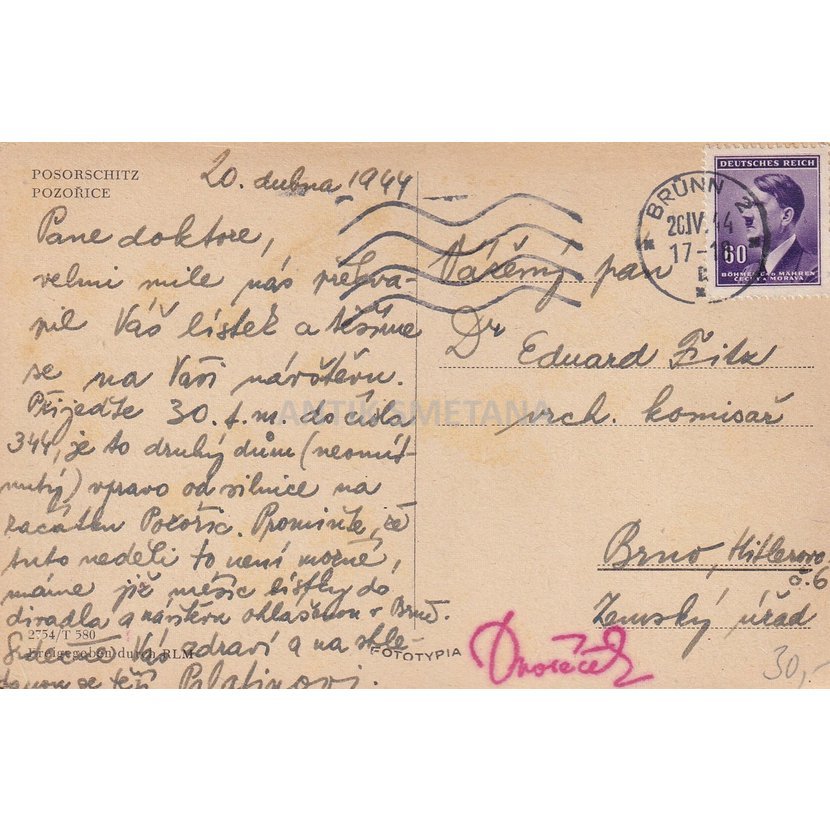 POSORSCHITZ
POZOŘICE
20. dubna 1944
Pane doktore,
velmi mile nás překva-
pil Váš lístek a těšíme
se na Vaši návštěvu.
Přijeďte 30. t. m. do čísla
344, je to druhý dům (neomít-
nutý) vpravo od silnice na
začátku Pozořic. Promiňte, že
tuto neděli to není možné,
máme již měsíc lístky do
divadla a návštěvu ohlášenou v Brně.
Srdečně Vás zdraví a na shle-
danou se těší
2754/T 580
Freigegeben durch RLM
FOTOTYPIA
DEUTSCHES REICH
60
BÖHMEN u. MÄHREN
ČECHY a MORAVA
BRÜNN 2
20.IV.44
17-18
Vážený pan
Dr Eduard
vrch. komisař
Brno, Hitlerova
č. 6
Zemský úřad
30,-
ANTIK SMETANA